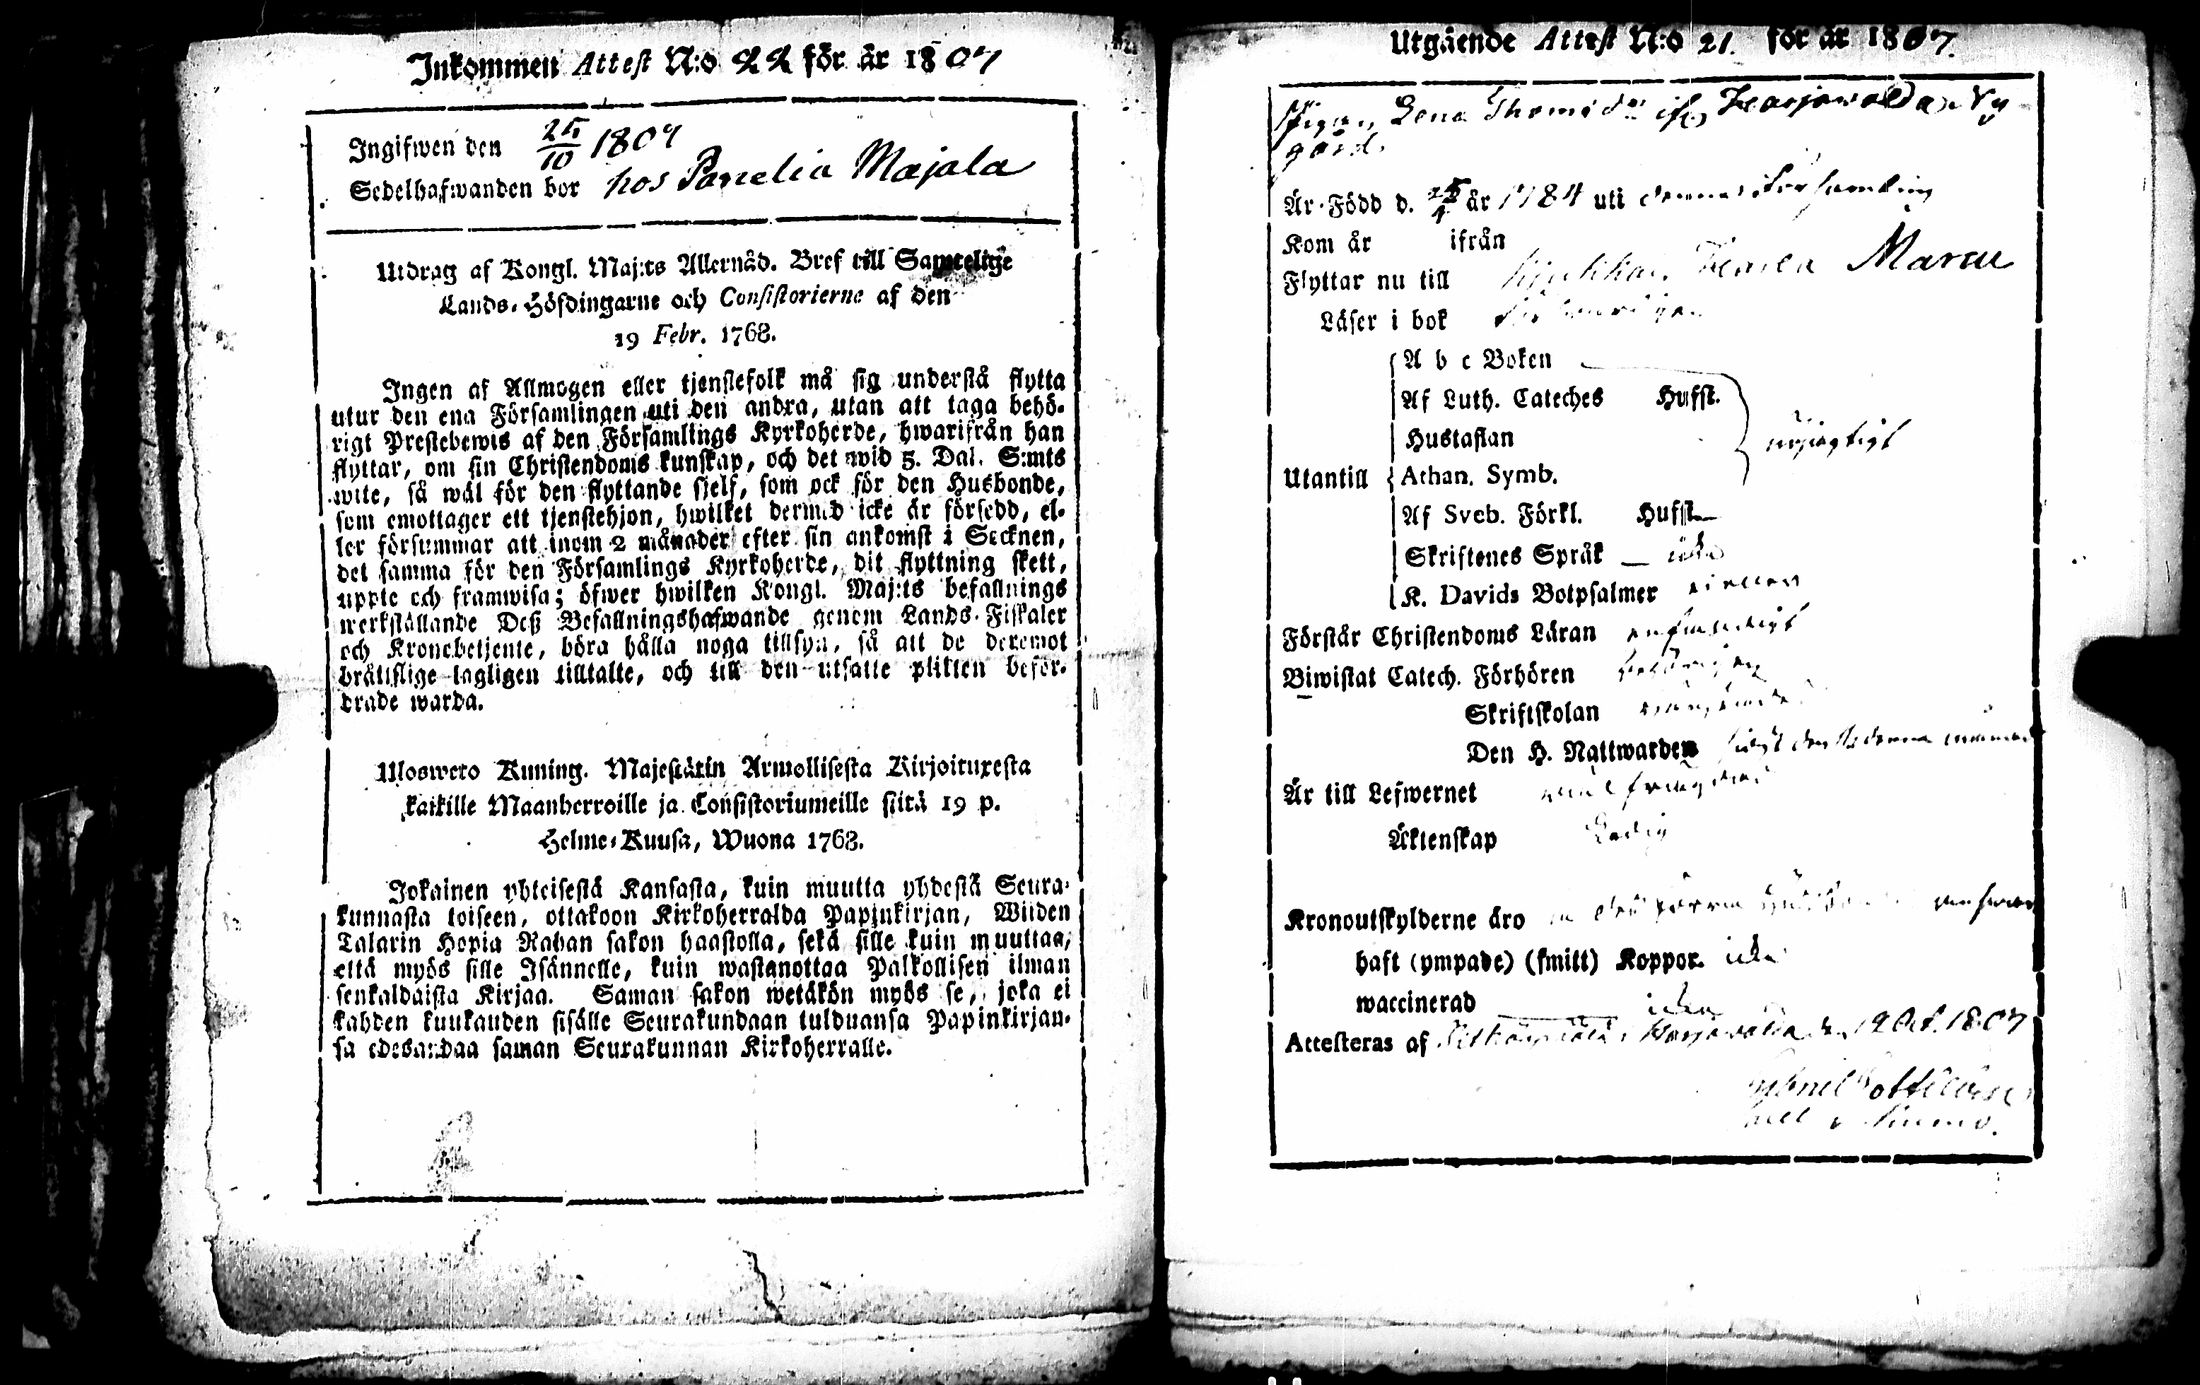 Inkommen Attest N:o 22 för år 1807
Ingifwen den 25/10 1807
Sedelhafwanden bor hos Panelia Majala
Utdrag af Kongl. Maj:ts Allernåd. Bref till Samtelige
Lands-Höfdingarne och Consistorierne af den
19 Febr. 1768.
Ingen af Allmogen eller tjenstefolk må sig understå flytta
utur den ena Församlingen uti den andra, utan att taga behö-
rigt Prestebewis af den Församlings Kyrkoherde, hwarifrån han
flyttar, om sin Christendoms kunskap, och det wid 5. Dal. S:mts
wite, så wäl för den flyttande sjelf, som ock för den Husbonde,
som emottager ett tjenstehjon, hwilket dermed icke är försedd, el-
ler försummar att inom 2 månader efter sin ankomst i Socknen,
det samma för den Församlings Kyrkoherde, dit flyttning skett,
uppte och framwisa; öfwer hwilken Kongl. Maj:ts befallnings
werkställande Deß Befallningshafwande genom Lands-Fiskaler
och Kronobetjente, böra hålla noga tillsyn, så att de deremot
bråttslige lagligen tilltalte, och till den utsatte plikten befor-
drade warda.
Uloswero Kuning. Majestätin Armollisesta Kirjoituxesta
kaikille Maanherroille ja Consistoriumeille siitä 19 p.
Helme-Kuusa, Wuona 1768.
Jokainen yhteisestä Kansasta, kuin muutta yhdestä Seura-
kunnasta toiseen, ottakoon Kirkoherralda Papinkirjan, Wiiden
Talarin Hopia Rahan sakon haastolla, sekä sille kuin muuttaa,
että myös sille Isännelle, kuin wastanottaa Palkollisen ilman
senkaldaista Kirjaa. Saman sakon wetäkön myös se, joka ei
kahden kuukauden sisälle Seurakundaan tulduansa Papinkirjan-
sa edesandaa saman Seurakunnan Kirkoherralle.
Utgående Attest N:o 21. för år 1807.
Pigan Lena Thomsdr ifr Harjavalda Ny
gård.
Är Född d. år 1784 uti denna Församling
Kom år ifrån
Flyttar nu till Kiukkais Panelia Maran
Läser i bok
A b c Boken
Af Luth. Cateches Hufst.
Hustaflan
Utantill Athan. Symb.
Af Sveb. Förkl. Hufst.
Skriftenes Språk icke
K. Davids Botpsalmer ej eller
Förstår Christendoms Läran
Biwistat Catech. Förhören
Skriftskolan
Den H. Nattwarden
Är till Lefwernet
Äktenskap Ledig
Kronoutskylderne äro
haft (ympade) (smitt) Koppor. icke
waccinerad icke
Attesteras af Harjavalda d. 19 Oct. 1807